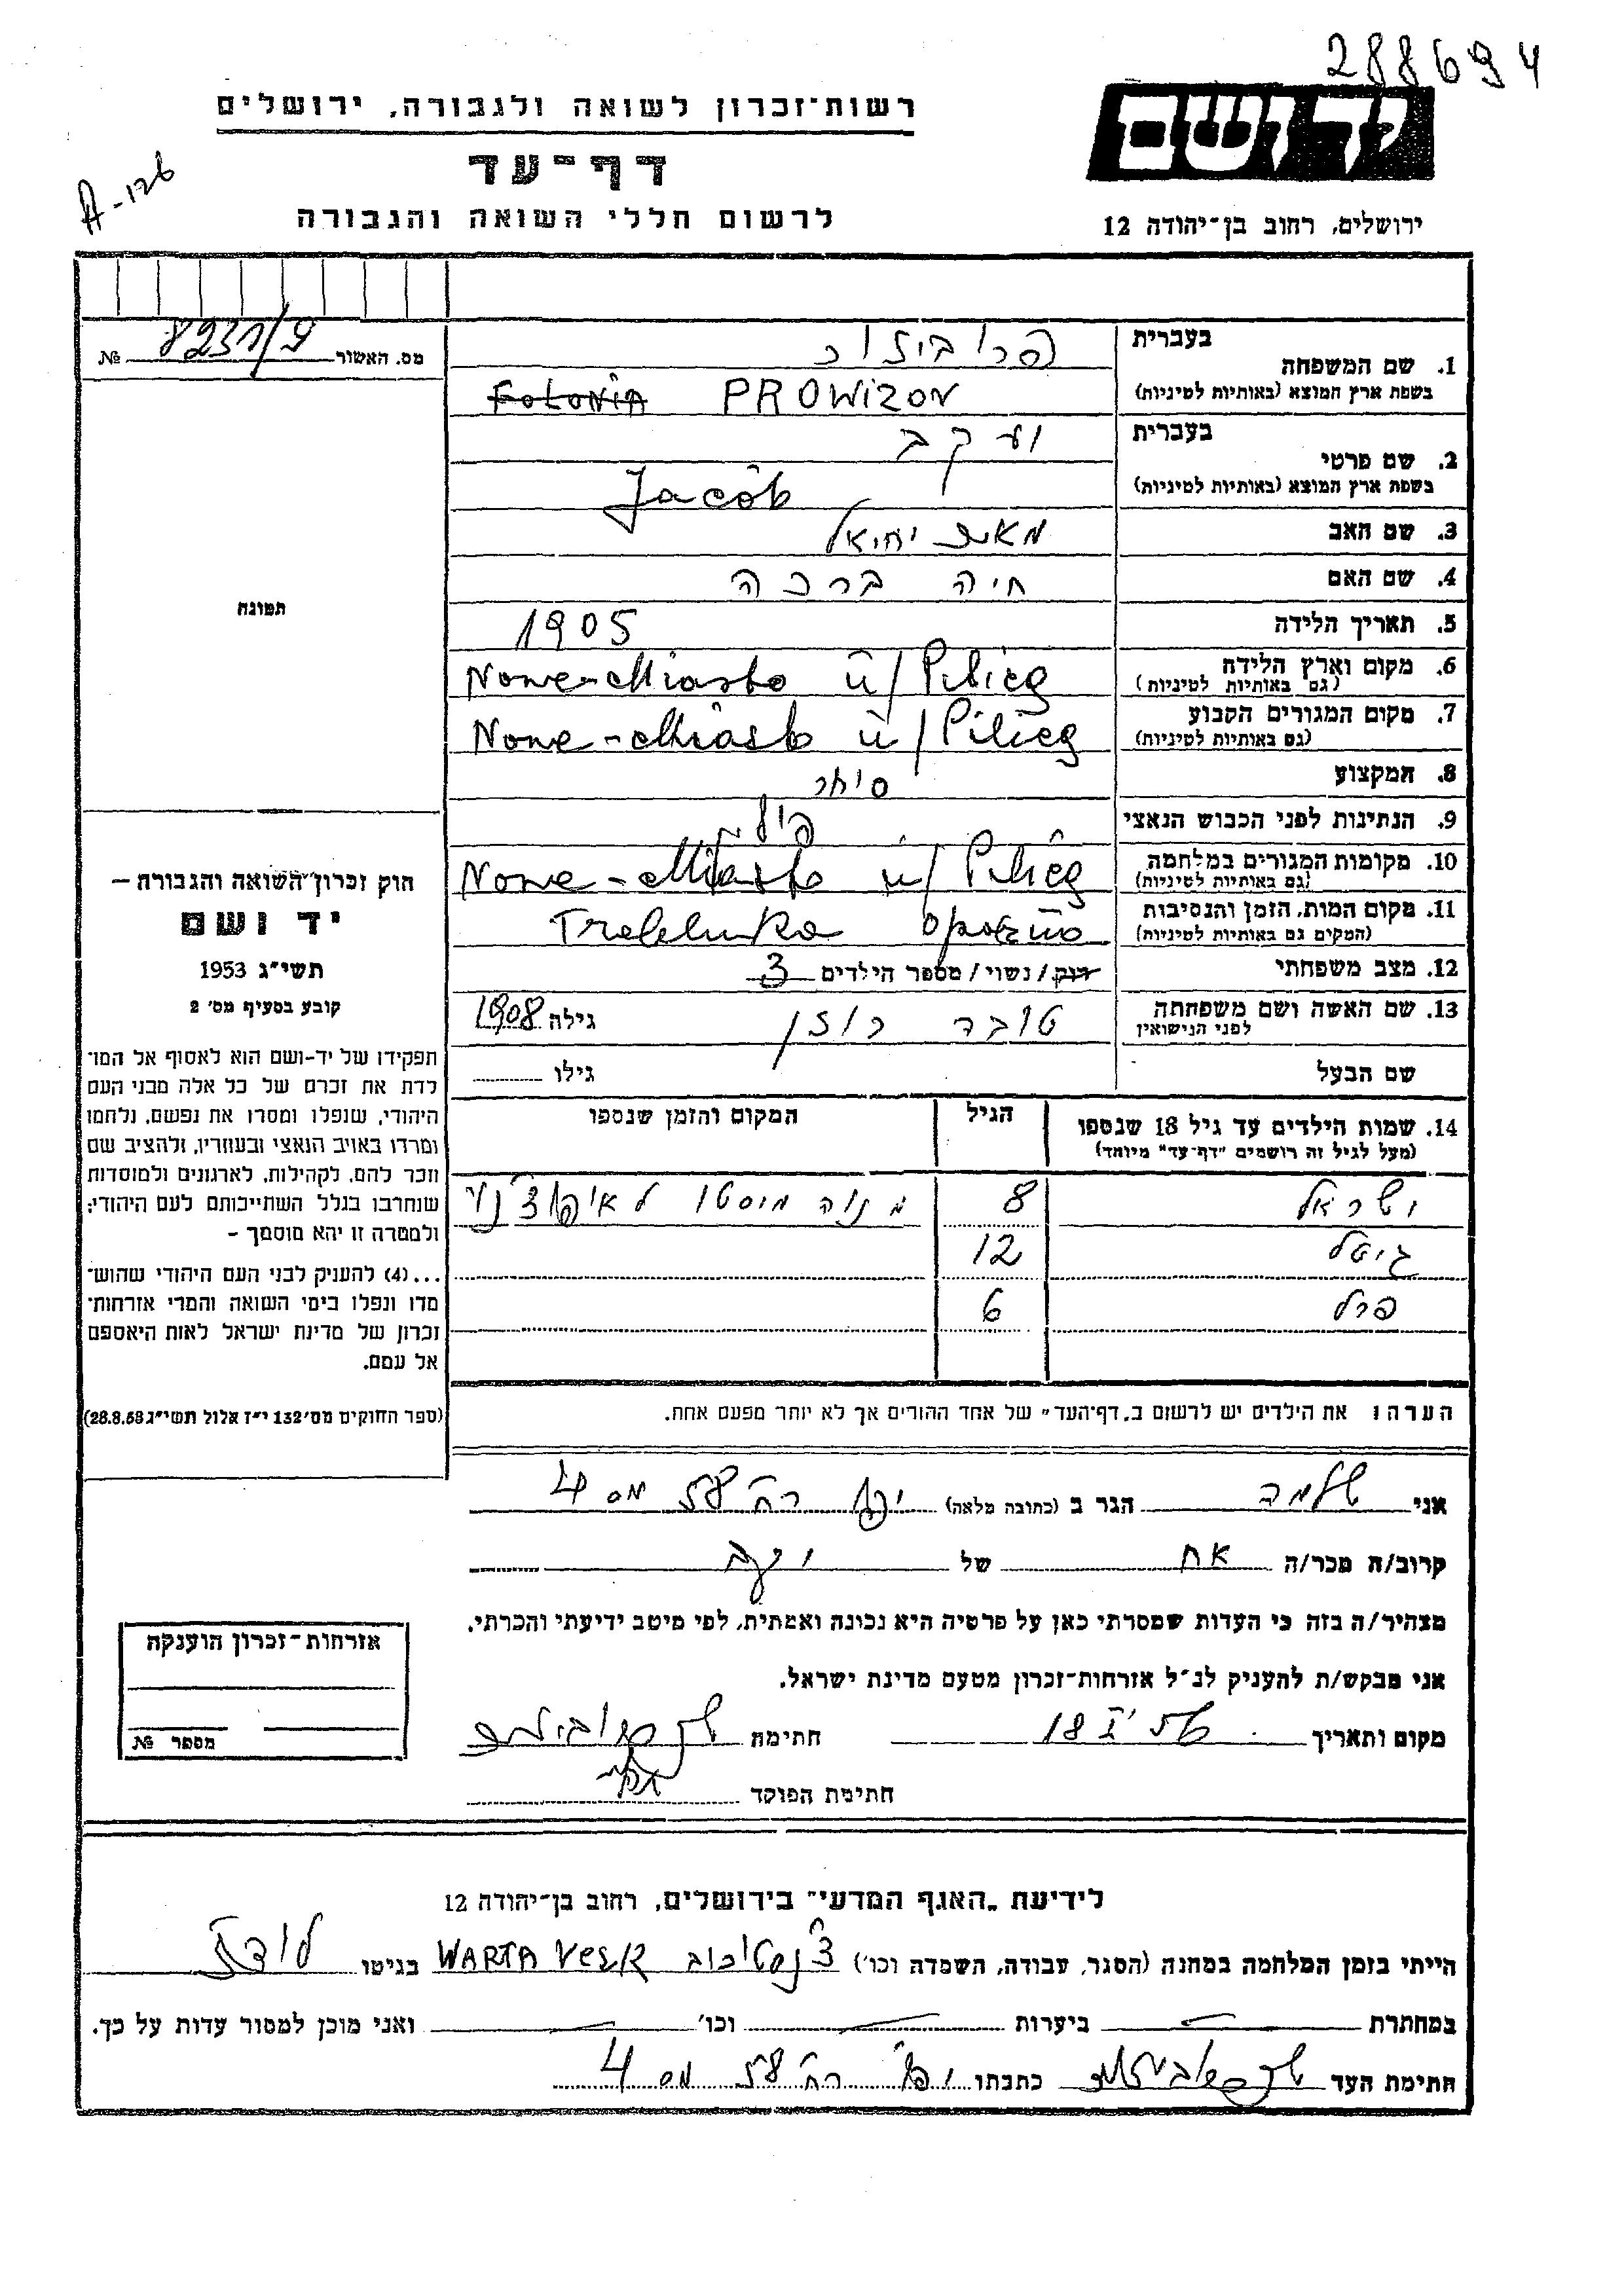 288694
רשות-זכרון לשואה ולגבורה, ירושלים
יד ושם
דף-עד
A-126
לרשום חללי השואה והגבורה
ירושלים, רחוב בן-יהודה 12
בעברית
1. שם המשפחה
בשפת ארץ המוצא (באותיות לטיניות)
PROWIZOR
מס. האשור № 8231/9
בעברית יעקב
2. שם פרטי
בשפת ארץ המוצא (באותיות לטיניות)
Jacob
3. שם האב יחיאל
4. שם האם חיה ברכה
תמונה
5. תאריך הלידה 1905
6. מקום וארץ הלידה
(גם באותיות לטיניות)
Nowe-Miasto n/Pilicą
7. מקום המגורים הקבוע
(גם באותיות לטיניות)
Nowe-Miasto n/Pilicą
8. המקצוע סוחר
9. הנתינות לפני הכבוש הנאצי
10. מקומות המגורים במלחמה
(גם באותיות לטיניות)
Nowe-Miasto n/Pilicą
11. מקום המות, הזמן והנסיבות
(המקום גם באותיות לטיניות)
Treblinka Opoczno
12. מצב משפחתי רוק/נשוי/מספר הילדים 3
13. שם האשה ושם משפחתה
לפני הנישואין
גילה 1908
שם הבעל גילו
14. שמות הילדים עד גיל 18 שנספו
(מעל לגיל זה רושמים "דף-עד" מיוחד)
הגיל
המקום והזמן שנספו
ישראל 8
גיטל 12
פרל 6
הערה: את הילדים יש לרשום ב„דף-העד" של אחד ההורים אך לא יותר מפעם אחת.
חוק זכרון השואה והגבורה –
יד ושם
תשי"ג 1953
קובע בסעיף מס' 2
תפקידו של יד-ושם הוא לאסוף אל המו־
לדת את זכרם של כל אלה מבני העם
היהודי, שנפלו ומסרו את נפשם, נלחמו
ומרדו באויב הנאצי ובעוזריו, ולהציב שם
וזכר להם, לקהילות, לארגונים ולמוסדות
שנחרבו בגלל השתייכותם לעם היהודי;
ולמטרה זו יהא מוסמך –
...(4) להעניק לבני העם היהודי שהוש־
מדו ונפלו בימי השואה והמרי אזרחות־
זכרון של מדינת ישראל לאות היאספם
אל עמם.
(ספר החוקים מס' 132 י"ז אלול תשי"ג 28.8.53)
אני שלמה הגר ב (כתובת מלאה) יפו רח' 58 מס 4
קרוב/ה מכר/ה אח של יעקב
מצהיר/ה בזה כי העדות שמסרתי כאן על פרטיה היא נכונה ואמתית, לפי מיטב ידיעתי והכרתי.
אני מבקש/ת להעניק לנ"ל אזרחות-זכרון מטעם מדינת ישראל.
מקום ותאריך חתימה
חתימת הפוקד
אזרחות-זכרון הוענקה
מספר №
לידיעת „האגף המדעי" בירושלים, רחוב בן-יהודה 12
הייתי בזמן המלחמה במחנה (הסגר, עבודה, השמדה וכו') WARTA בגיטו לודז
במחתרת ביערות וכו' ואני מוכן למסור עדות על כך.
חתימת העד כתבתו יפו רח' 58 מס 4